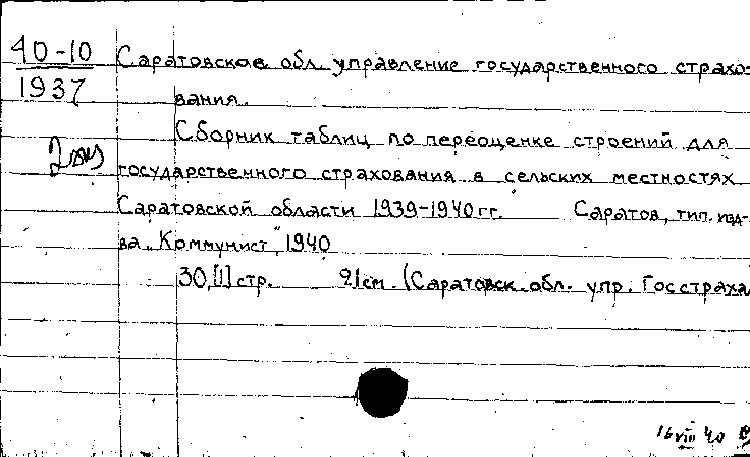 40-10
1937
2 экз
Саратовское обл. управление государственного страхо-
вания.
Сборник таблиц по переоценке строений для
государственного страхования в сельских местностях
Саратовской области 1939-1940 гг. Саратов, тип. изд-
ва „Коммунист", 1940
30,[1] стр. 21 см. (Саратовск. обл. упр. Госстраха
16 VIII 40